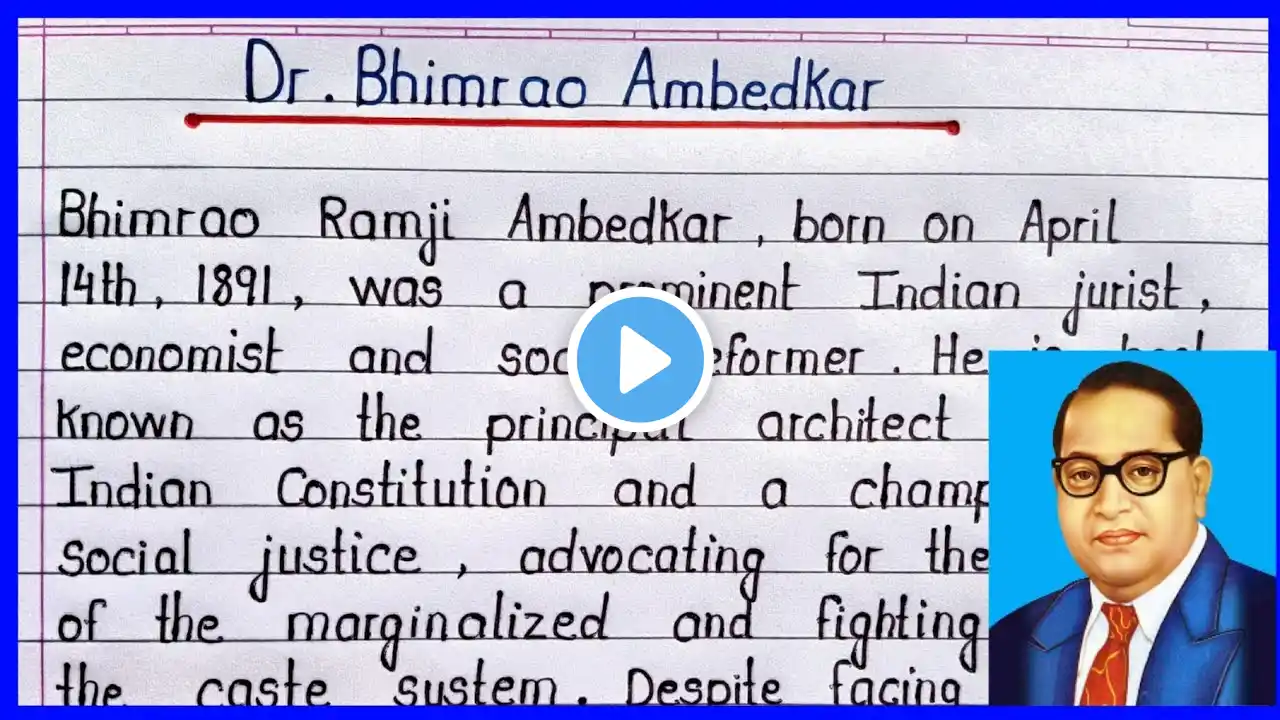 Dr. Bhimrao Ambedkar
Bhimrao Ramji Ambedkar, born on April
14th, 1891, was a prominent Indian jurist,
economist and reformer. He is
known as the principal architect
Indian Constitution and a
social justice, advocating for the
of the marginalized and fighting
the caste system. Despite facing